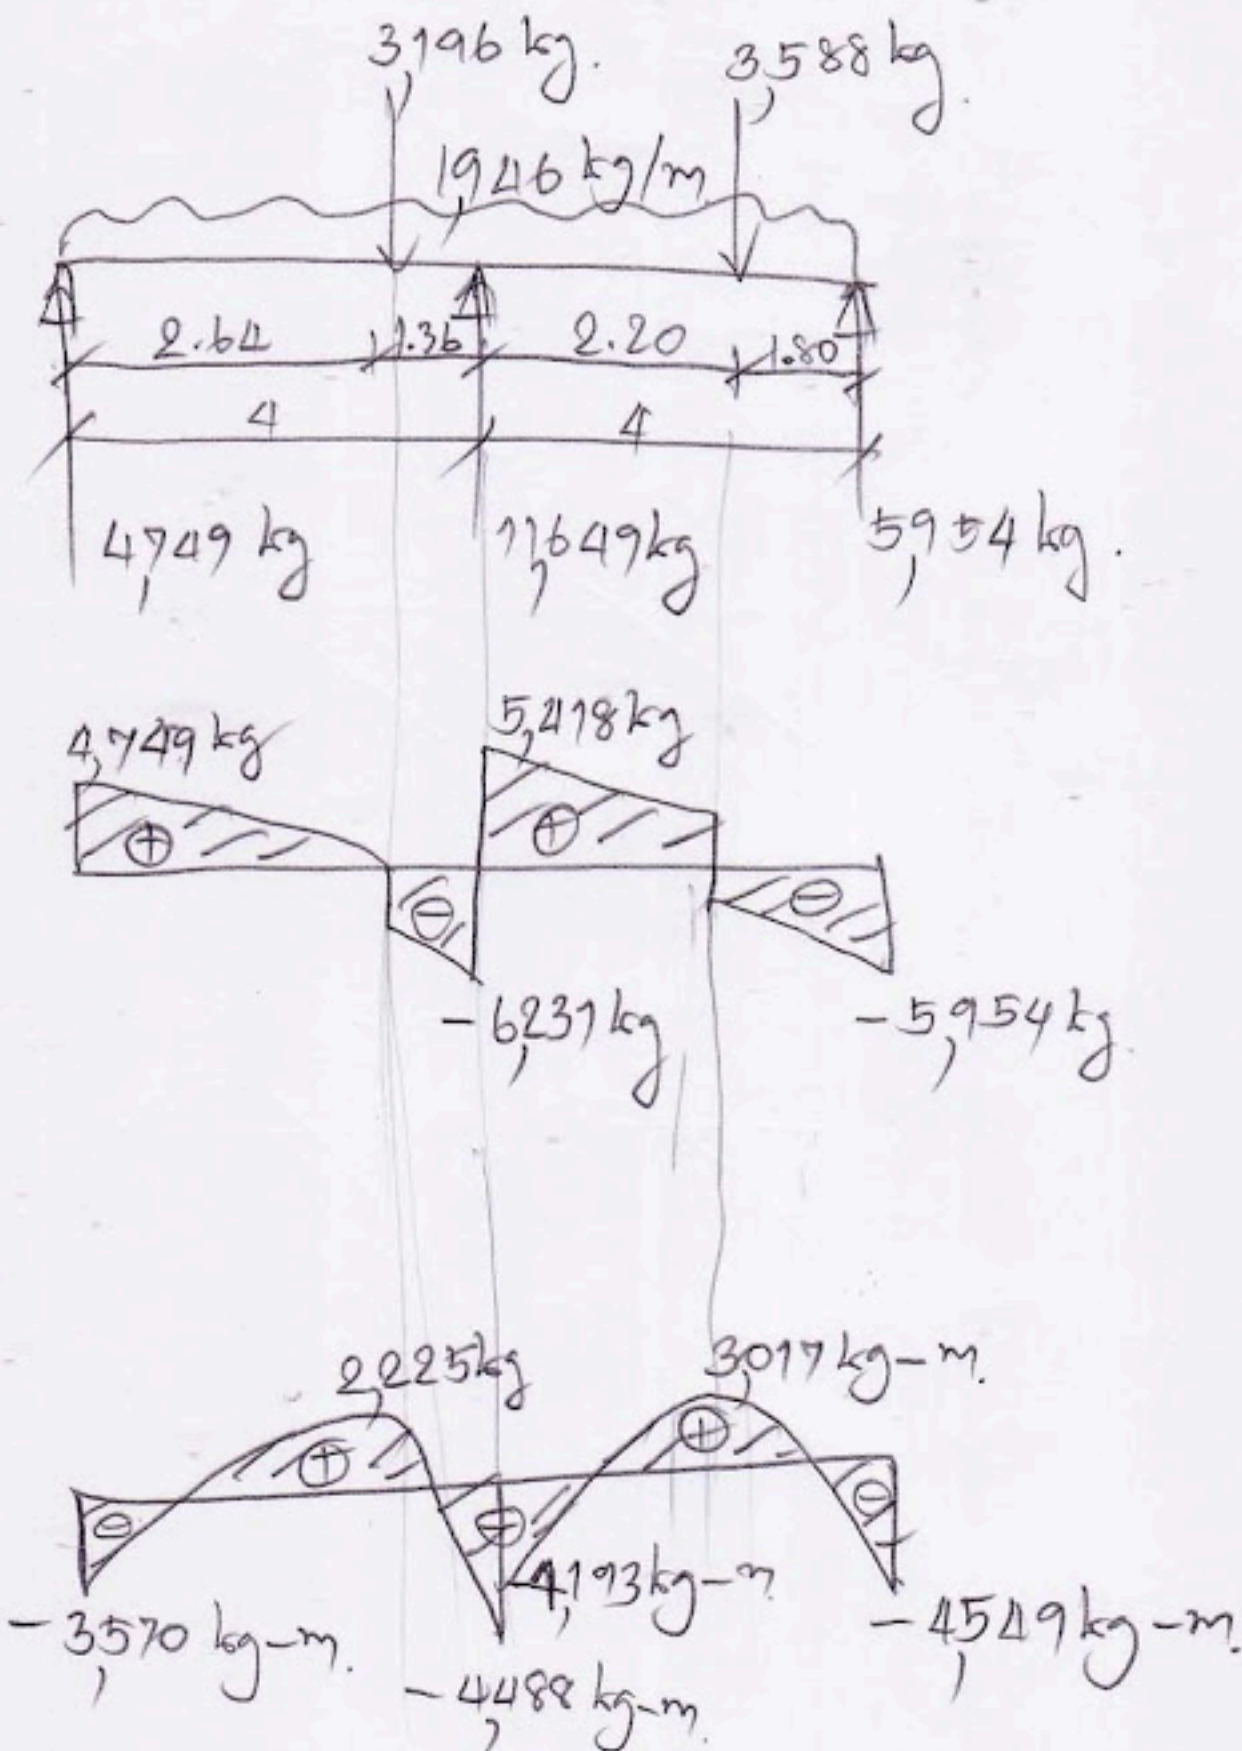 3,196 kg.
3,588 kg.
1,946 kg/m
2.64 1.36 2.20 1.80
4 4
4,749 kg 11,649 kg 5,954 kg.
4,749 kg
5,418 kg
+ + - -
-6,231 kg
-5,954 kg
2,225 kg
3,017 kg-m.
+ +
- - + -
-4,193 kg-m
-3,570 kg-m.
-4,549 kg-m.
-4,488 kg-m.